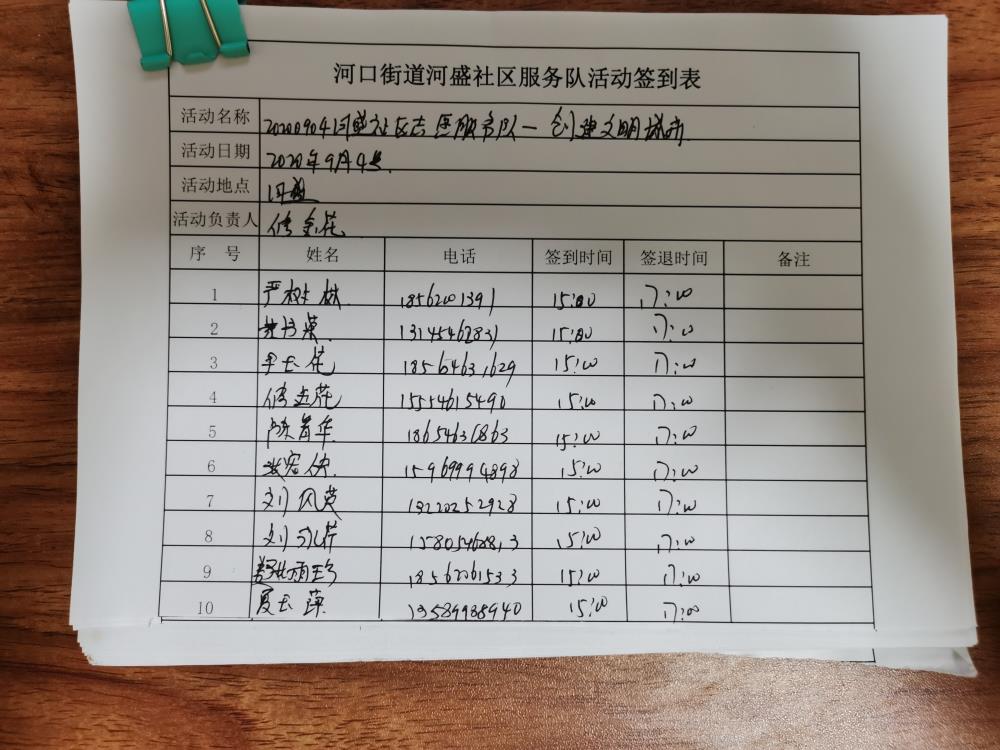 河口街道河盛社区服务队活动签到表
活动名称 20200904河盛社区志愿服务队一创建文明城市
活动日期 2020年9月4号
活动地点 河盛
活动负责人
序 号 姓名 电话 签到时间 签退时间 备注
1 严树林 18562001391 15:00 17:00
2 13145462831 15:00 17:00
3 18564631629 15:00 17:00
4 15554615490 15:00 17:00
5 陈眷华 15:00 17:00
6 15969994898 15:00 17:00
7 刘凤英 13220252928 15:00 17:00
8 刘 15805462813 15:00 17:00
9 18562061533 15:00 17:00
10 夏玉萍 13589988940 15:00 17:00